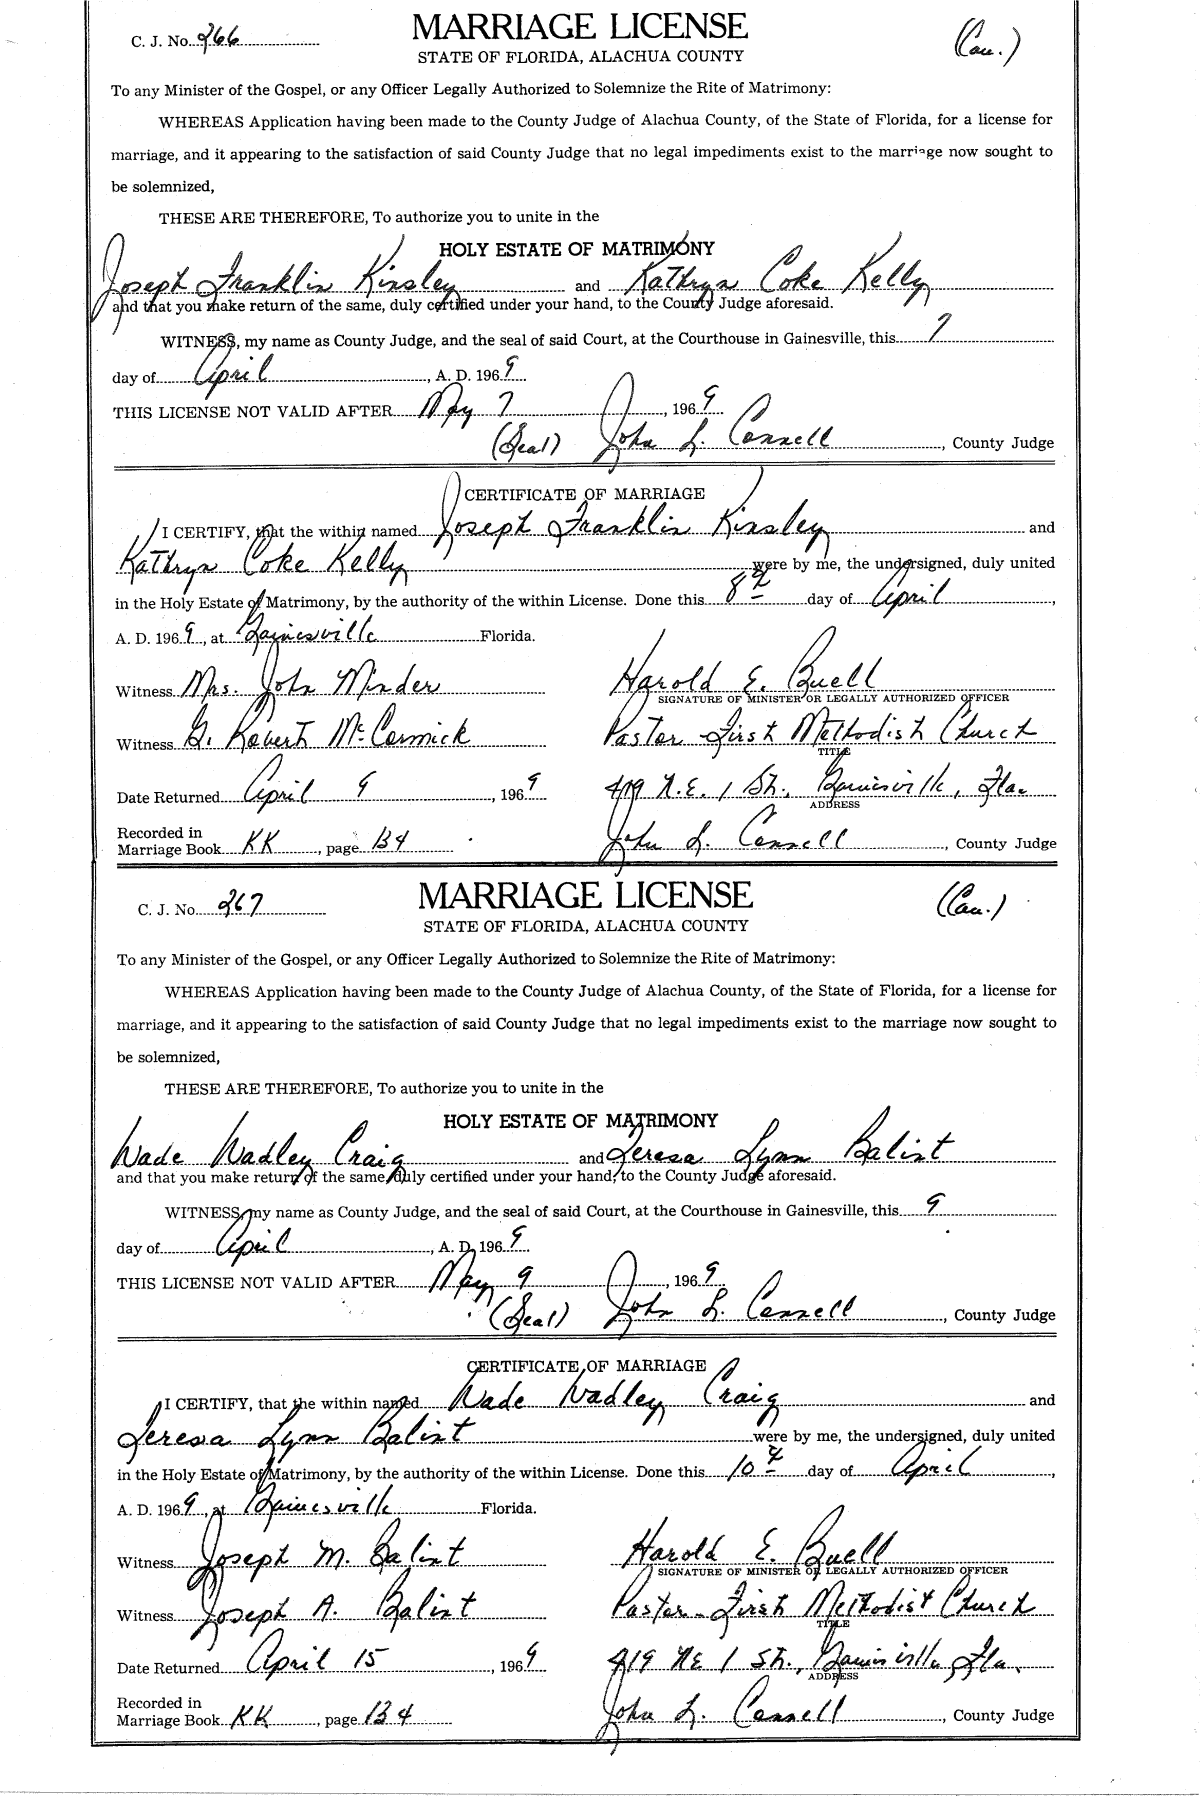 C. J. No. 266 MARRIAGE LICENSE (Cau.)
STATE OF FLORIDA, ALACHUA COUNTY
To any Minister of the Gospel, or any Officer Legally Authorized to Solemnize the Rite of Matrimony:
WHEREAS Application having been made to the County Judge of Alachua County, of the State of Florida, for a license for
marriage, and it appearing to the satisfaction of said County Judge that no legal impediments exist to the marriage now sought to
be solemnized,
THESE ARE THEREFORE, To authorize you to unite in the
HOLY ESTATE OF MATRIMONY
Joseph Franklin Kinsley and Kathryn Coke Kelly
and that you make return of the same, duly certified under your hand, to the County Judge aforesaid.
WITNESS, my name as County Judge, and the seal of said Court, at the Courthouse in Gainesville, this 7
day of April, A. D. 1969
THIS LICENSE NOT VALID AFTER May 7, 1969
(Seal) John L. Connell, County Judge
CERTIFICATE OF MARRIAGE
I CERTIFY, that the within named Joseph Franklin Kinsley and
Kathryn Coke Kelly were by me, the undersigned, duly united
in the Holy Estate of Matrimony, by the authority of the within License. Done this 8th day of April,
A. D. 1969, at Gainesville Florida.
Witness Mrs. John Minder Harold E. Buell
SIGNATURE OF MINISTER OR LEGALLY AUTHORIZED OFFICER
Witness G. Robert McCormick Pastor - First Methodist Church
TITLE
Date Returned April 9, 1969 419 N.E. 1 St., Gainesville, Fla.
ADDRESS
Recorded in
Marriage Book KK, page 134 John L. Connell, County Judge
C. J. No. 267 MARRIAGE LICENSE (Cau.)
STATE OF FLORIDA, ALACHUA COUNTY
To any Minister of the Gospel, or any Officer Legally Authorized to Solemnize the Rite of Matrimony:
WHEREAS Application having been made to the County Judge of Alachua County, of the State of Florida, for a license for
marriage, and it appearing to the satisfaction of said County Judge that no legal impediments exist to the marriage now sought to
be solemnized,
THESE ARE THEREFORE, To authorize you to unite in the
HOLY ESTATE OF MATRIMONY
Wade Wadley Craig and Teresa Lynn Balint
and that you make return of the same, duly certified under your hand, to the County Judge aforesaid.
WITNESS, my name as County Judge, and the seal of said Court, at the Courthouse in Gainesville, this 9
day of April, A. D. 1969
THIS LICENSE NOT VALID AFTER May 9, 1969
(Seal) John L. Connell, County Judge
CERTIFICATE OF MARRIAGE
I CERTIFY, that the within named Wade Wadley Craig and
Teresa Lynn Balint were by me, the undersigned, duly united
in the Holy Estate of Matrimony, by the authority of the within License. Done this 10th day of April,
A. D. 1969, at Gainesville Florida.
Witness Joseph M. Balint Harold E. Buell
SIGNATURE OF MINISTER OR LEGALLY AUTHORIZED OFFICER
Witness Joseph A. Balint Pastor - First Methodist Church
TITLE
Date Returned April 15, 1969 419 NE 1 St., Gainesville, Fla.
ADDRESS
Recorded in
Marriage Book KK, page 134 John L. Connell, County Judge